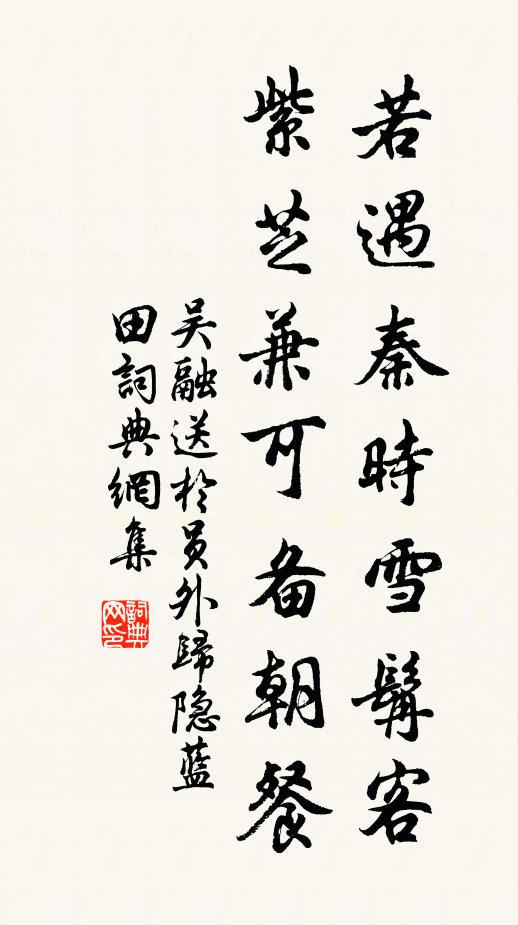 若遇秦時雪鬢客
紫芝兼可备朝餐
吴融送於員外歸隐藍
田詞典網集
詞典
网印